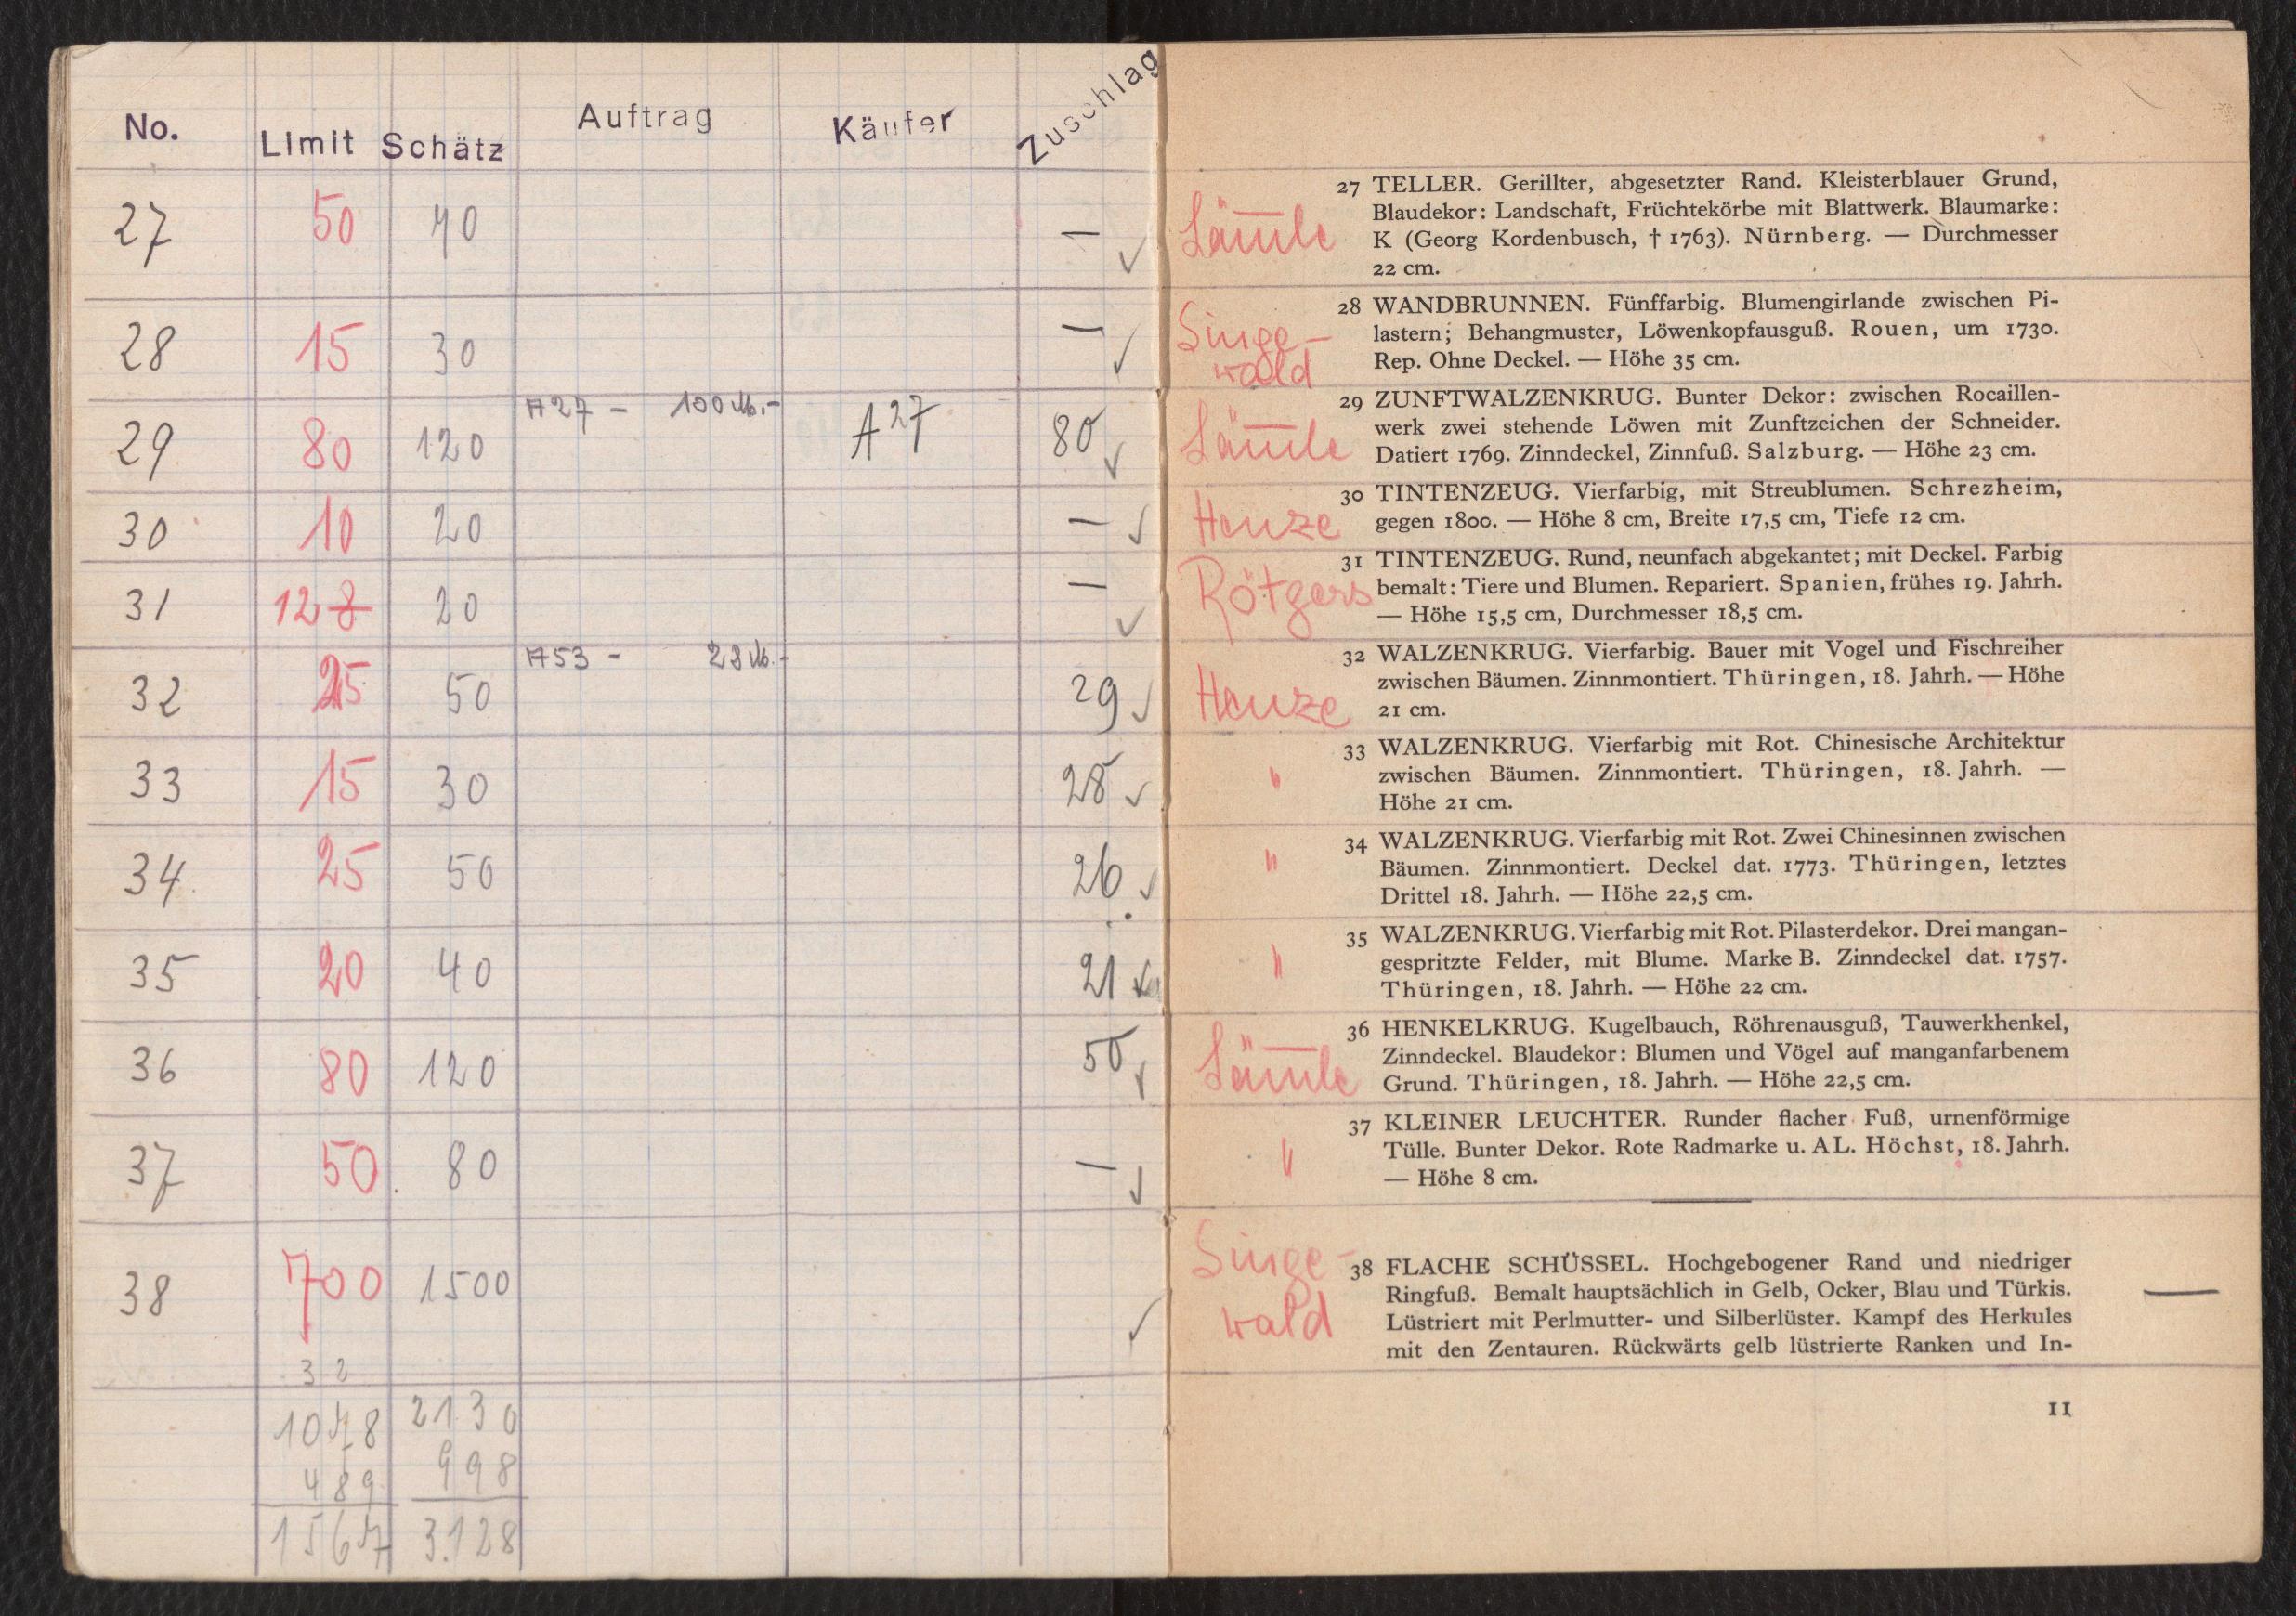 No. Limit Schätz Auftrag Käufer Zuschlag
27 50 40 —
28 15 30 —
29 80 120 A27 – 100 M.– A27 80
30 10 20 —
31 12 8 20 —
32 25 50 A53 – 28 M.– 29
33 15 30 28
34 25 50 26
35 20 40 21
36 80 120 50
37 50 80 —
38 700 1500
32
1078 2130
489 998
1567 3128
27 TELLER. Gerillter, abgesetzter Rand. Kleisterblauer Grund,
Blaudekor: Landschaft, Früchtekörbe mit Blattwerk. Blaumarke:
K (Georg Kordenbusch, † 1763). Nürnberg. — Durchmesser
22 cm.
Singe-
wald
28 WANDBRUNNEN. Fünffarbig. Blumengirlande zwischen Pi-
lastern; Behangmuster, Löwenkopfausguß. Rouen, um 1730.
Rep. Ohne Deckel. — Höhe 35 cm.
29 ZUNFTWALZENKRUG. Bunter Dekor: zwischen Rocaillen-
werk zwei stehende Löwen mit Zunftzeichen der Schneider.
Datiert 1769. Zinndeckel, Zinnfuß. Salzburg. — Höhe 23 cm.
Henze
30 TINTENZEUG. Vierfarbig, mit Streublumen. Schrezheim,
gegen 1800. — Höhe 8 cm, Breite 17,5 cm, Tiefe 12 cm.
Rötgers
31 TINTENZEUG. Rund, neunfach abgekantet; mit Deckel. Farbig
bemalt: Tiere und Blumen. Repariert. Spanien, frühes 19. Jahrh.
— Höhe 15,5 cm, Durchmesser 18,5 cm.
Henze
32 WALZENKRUG. Vierfarbig. Bauer mit Vogel und Fischreiher
zwischen Bäumen. Zinnmontiert. Thüringen, 18. Jahrh. — Höhe
21 cm.
"
33 WALZENKRUG. Vierfarbig mit Rot. Chinesische Architektur
zwischen Bäumen. Zinnmontiert. Thüringen, 18. Jahrh. —
Höhe 21 cm.
"
34 WALZENKRUG. Vierfarbig mit Rot. Zwei Chinesinnen zwischen
Bäumen. Zinnmontiert. Deckel dat. 1773. Thüringen, letztes
Drittel 18. Jahrh. — Höhe 22,5 cm.
"
35 WALZENKRUG. Vierfarbig mit Rot. Pilasterdekor. Drei mangan-
gespritzte Felder, mit Blume. Marke B. Zinndeckel dat. 1757.
Thüringen, 18. Jahrh. — Höhe 22 cm.
36 HENKELKRUG. Kugelbauch, Röhrenausguß, Tauwerkhenkel,
Zinndeckel. Blaudekor: Blumen und Vögel auf manganfarbenem
Grund. Thüringen, 18. Jahrh. — Höhe 22,5 cm.
"
37 KLEINER LEUCHTER. Runder flacher Fuß, urnenförmige
Tülle. Bunter Dekor. Rote Radmarke u. AL. Höchst, 18. Jahrh.
— Höhe 8 cm.
Singe-
wald
38 FLACHE SCHÜSSEL. Hochgebogener Rand und niedriger
Ringfuß. Bemalt hauptsächlich in Gelb, Ocker, Blau und Türkis.
Lüstriert mit Perlmutter- und Silberlüster. Kampf des Herkules
mit den Zentauren. Rückwärts gelb lüstrierte Ranken und In-
11